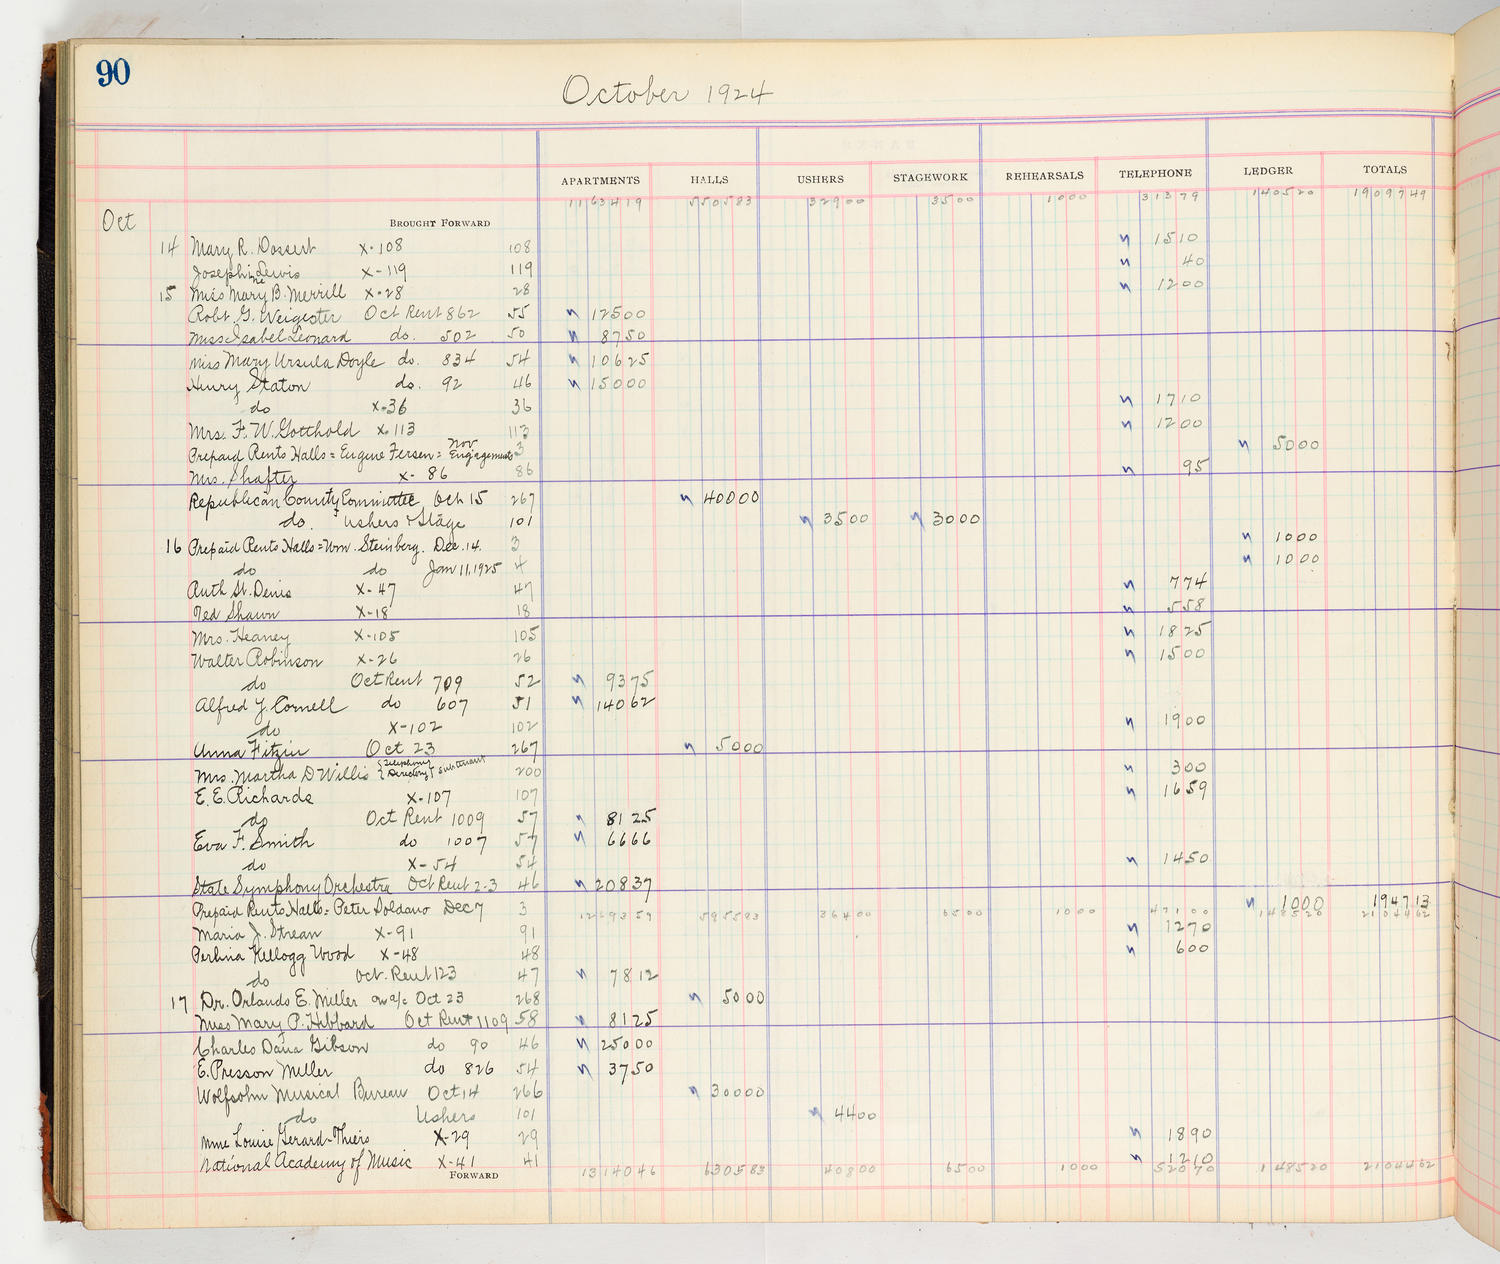 90
October 1924
APARTMENTS HALLS USHERS STAGEWORK REHEARSALS TELEPHONE LEDGER TOTALS
1163419 550583 32900 3500 1000 31379 140520 1909749
Oct BROUGHT FORWARD
14 Mary R. Dossert X-108 108 1510
Josephine Lewis X-119 119 40
15 Miss Mary B. Merrill X-28 28 1200
Robt. G. Weigester Oct Rent 862 55 12500
Miss Isabel Leonard do. 502 50 8750
Miss Mary Ursula Doyle do. 834 54 10625
Henry Staton do. 92 46 15000
do X-36 36 1710
Mrs. F. W. Gotthold X-113 113 1200
Prepaid Rents Halls = Eugene Fersen = Nov Engagements 3 5000
Mrs. Shafter X-86 86 95
Republican County Committee Oct 15 267 40000
do. Ushers & Stage 101 3500 3000
16 Prepaid Rents Halls = Wm. Steinberg. Dec. 14. 3 1000
do do Jan 11, 1925 4 1000
Ruth St. Denis X-47 47 774
Ted Shawn X-18 18 558
Mrs. Heaney X-105 105 1825
Walter Robinson X-26 26 1500
do Oct Rent 709 52 9375
Alfred Y. Cornell do 607 51 14062
do X-102 102 1900
Anna Fitziu Oct 23 267 5000
Mrs. Martha D. Willis { Telephone Directory } subtenant 200 300
E. E. Richards X-107 107 1659
do Oct Rent 1009 57 8125
Eva F. Smith do 1007 57 6666
do X-54 54 1450
State Symphony Orchestra Oct Rent 2-3 46 20837
Prepaid Rents Halls = Peter Soldano Dec 7 3 1000 194713
1269359 595583 36400 6500 1000 47100 148520 2104462
Maria J. Strean X-91 91 1270
Kellogg Wood X-48 48 600
do Oct. Rent 123 47 7812
17 Dr. Orlando E. Miller on a/c Oct 23 268 5000
Miss Mary P. Hibbard Oct Rent 1109 58 8125
Charles Dana Gibson do 90 46 25000
E. Presson Miller do 826 54 3750
Wolfsohn Musical Bureau Oct 14 266 30000
do Ushers 101 4400
Mme Louise Gerard-Thiers X-29 29 1890
National Academy of Music X-41 41 1210
FORWARD 1314046 630583 40800 6500 1000 52070 148520 2104462